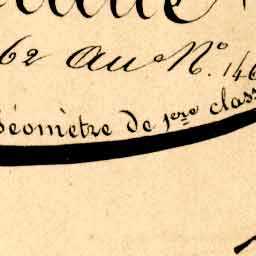 62 au N.º 146
Géomètre de 1ère class